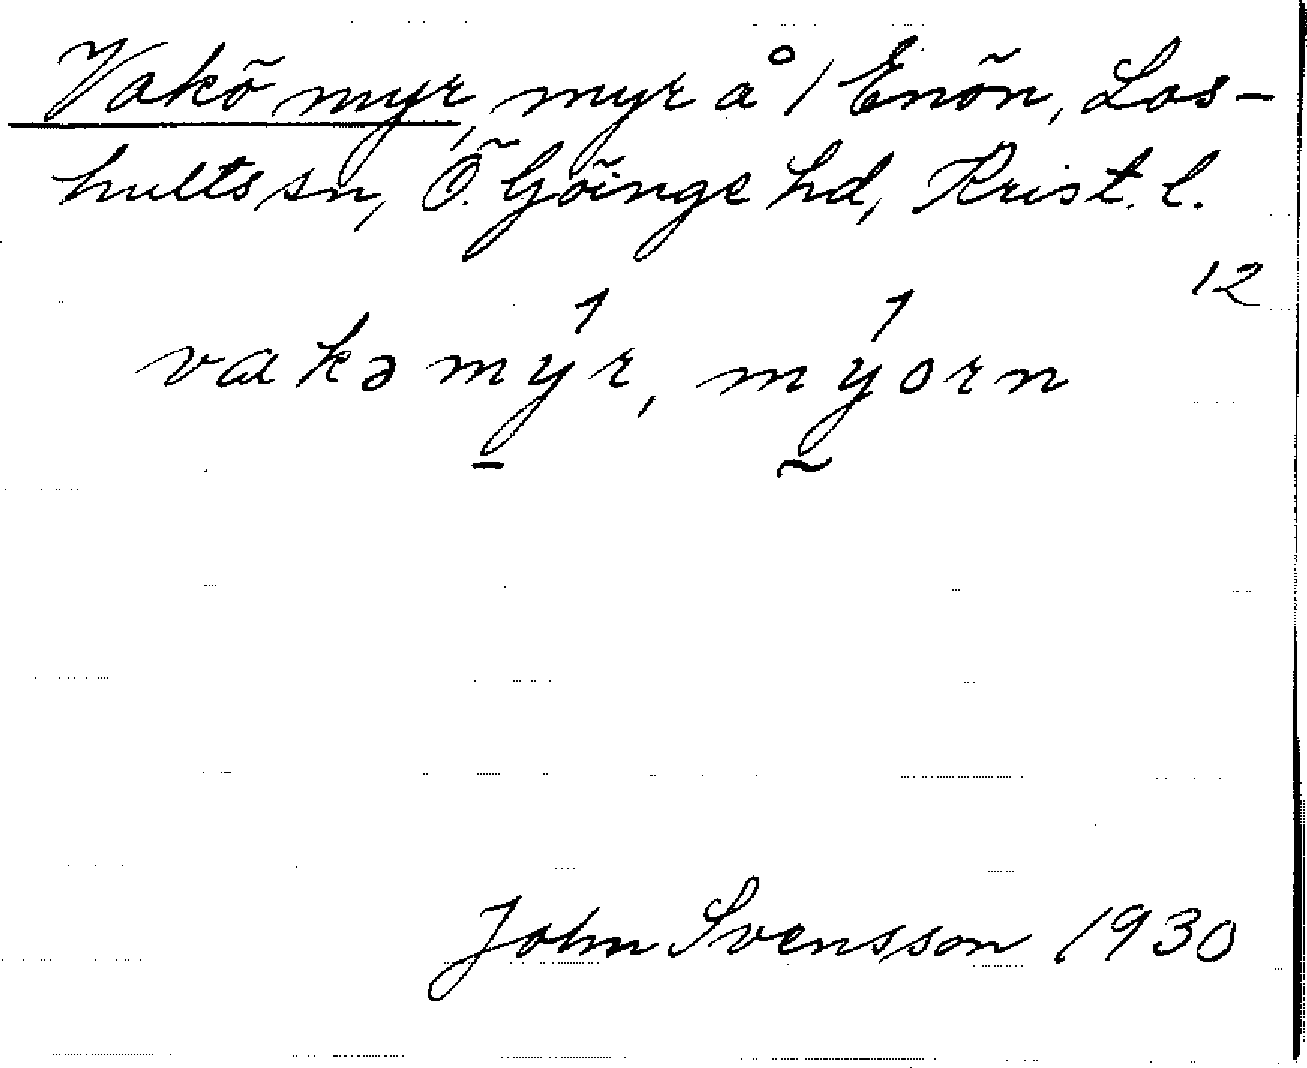 Vakö myr, myr å 1 Enön, Los-
hults sn, Ö. Göinge hd, Krist. l.
12
vakəmý̱r, mý̰orn
John Svensson 1930